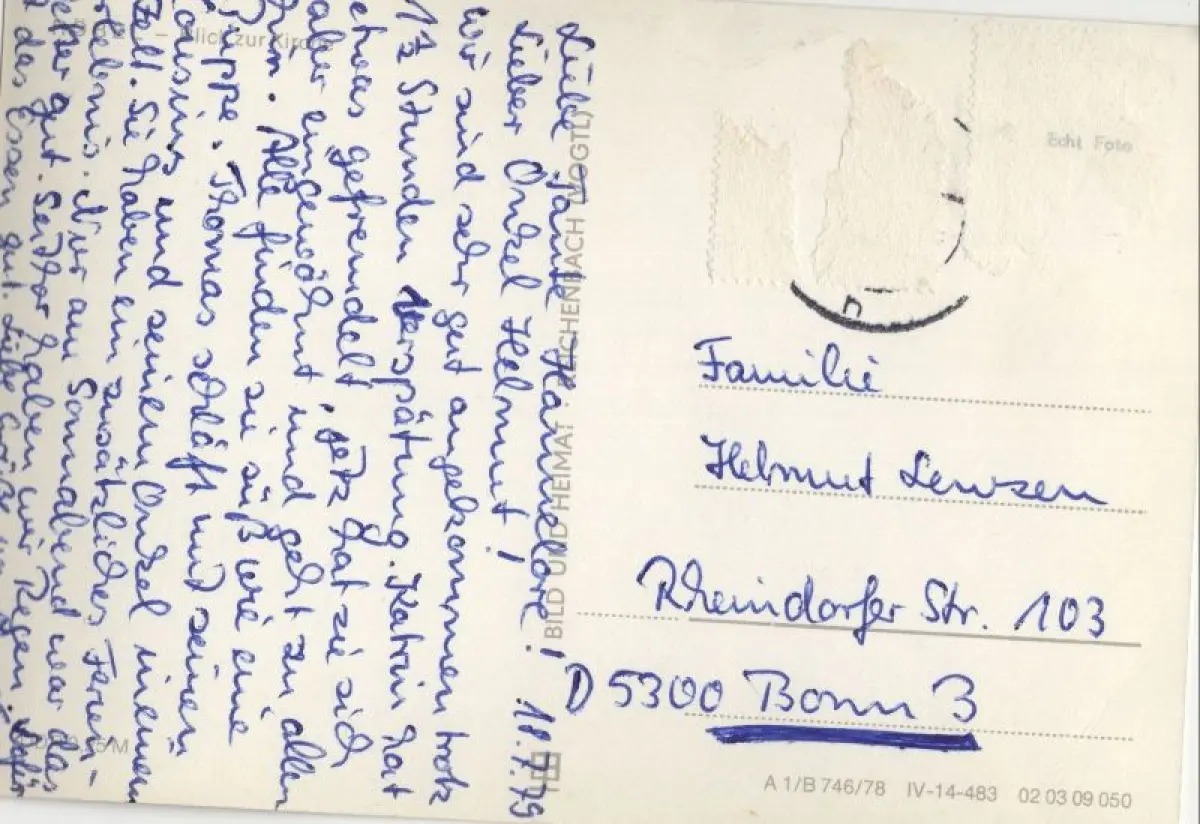 Liebe Tante Hannelore!
Lieber Onkel Helmut! 10.7.79
wir sind sehr gut angekommen trotz
1½ Stunden Verspätung. Katrin hat
etwas gefremdelt, jetz hat sie sich
aber eingewöhnt und geht zu allen
hin. Alle finden sie süß wie eine
Puppe. Thomas schläft mit seinen
Cousins und seinem Onkel in einem
Zelt. Sie haben ein zusätzliches Ferien-
erlebnis. Nur am Sonnabend war das
Wetter gut. Seither haben wir Regen. Dafür
das Essen gut. Liebe Grüße
Blick zur Kirche
BILD UND HEIMAT REICHENBACH (VOGTL)
Echt Foto
Familie
Helmut Lewzen
Rheindorfer Str. 103
D 5300 Bonn 3
A 1/B 746/78 IV-14-483 02 03 09 050